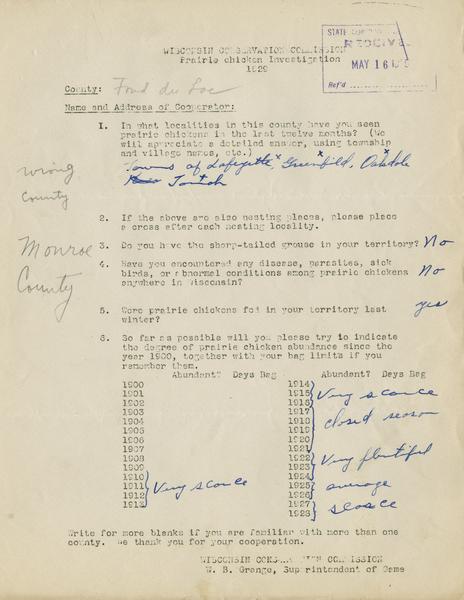 WISCONSIN CONSERVATION COMMISSION
Prairie Chicken Investigation
1929
STATE
RECEIVE
MAY 16
Ref'd
County: Fond du Lac
Name and Address of Cooperator:
1. In what localities in this county have you seen
prairie chickens in the last twelve months? (We
will appreciate a detailed answer, using township
and village names, etc.)
Towns of Lafayette x, Greenfield x, Oakdale x
wrong
County
2. If the above are also nesting places, please place
a cross after each nesting locality.
Monroe
County
3. Do you have the sharp-tailed grouse in your territory? No
4. Have you encountered any disease, parasites, sick
birds, or abnormal conditions among prairie chickens
anywhere in Wisconsin? No
5. Were prairie chickens fed in your territory last
winter? yes
6. So far as possible will you please try to indicate
the degree of prairie chicken abundance since the
year 1900, together with your bag limits if you
remember them.
Abundant? Days Bag Abundant? Days Bag
1900 1914
1901 1915 Very scarce
1902 1916
1903 1917
1904 1918 closed season
1905 1919
1906 1920
1907 1921
1908 1922 Very plentiful
1909 1923
1910 1924
1911 Very scarce 1925 average
1912 1926
1913 1927 scarce
1928
Write for more blanks if you are familiar with more than one
county. We thank you for your cooperation.
WISCONSIN CONSERVATION COMMISSION
W. B. Grange, Superintendent of Game